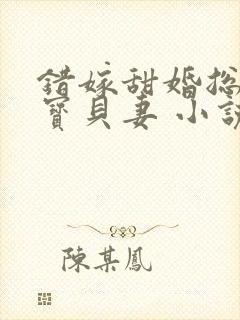 錯嫁甜婚總
寶貝妻 小說
陳某鳳